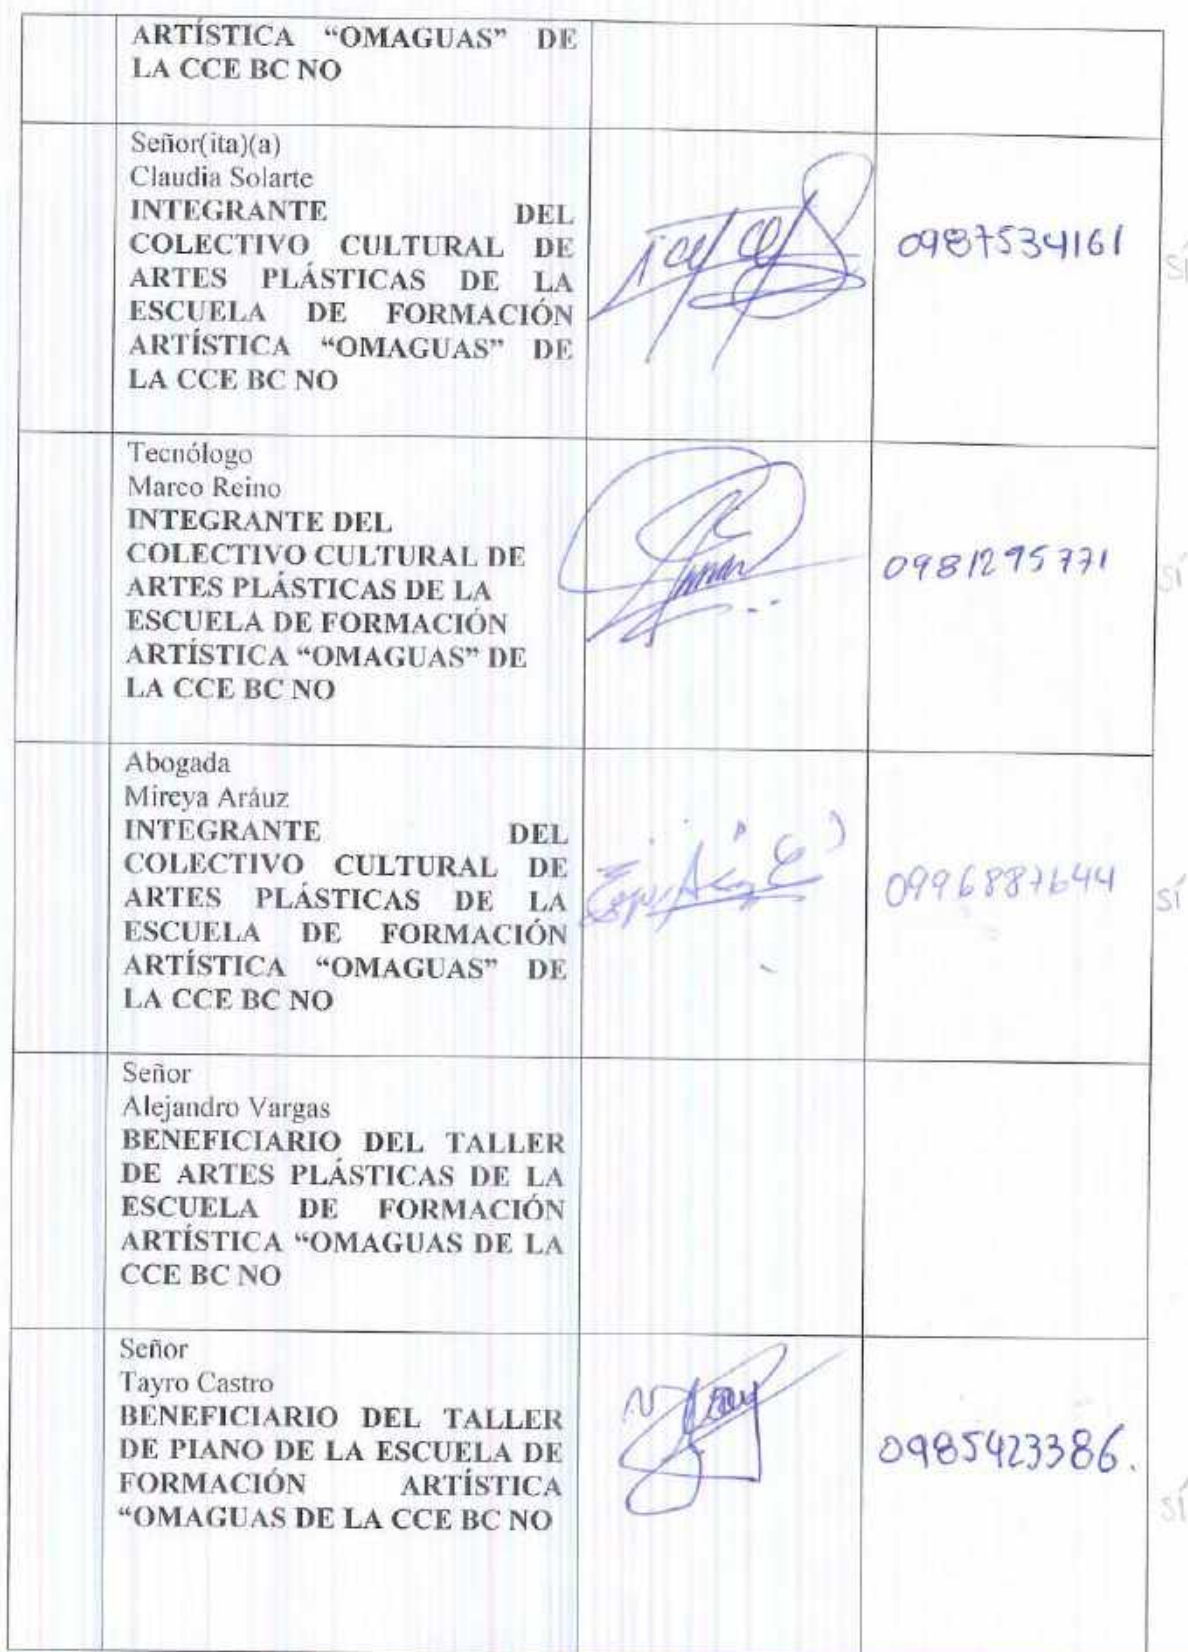 ARTÍSTICA “OMAGUAS” DE
LA CCE BC NO
Señor(ita)(a)
Claudia Solarte
INTEGRANTE DEL
COLECTIVO CULTURAL DE
ARTES PLÁSTICAS DE LA
ESCUELA DE FORMACIÓN
ARTÍSTICA “OMAGUAS” DE
LA CCE BC NO
0987534161
sí
Tecnólogo
Marco Reino
INTEGRANTE DEL
COLECTIVO CULTURAL DE
ARTES PLÁSTICAS DE LA
ESCUELA DE FORMACIÓN
ARTÍSTICA “OMAGUAS” DE
LA CCE BC NO
0981295771
sí
Abogada
Mireya Aráuz
INTEGRANTE DEL
COLECTIVO CULTURAL DE
ARTES PLÁSTICAS DE LA
ESCUELA DE FORMACIÓN
ARTÍSTICA “OMAGUAS” DE
LA CCE BC NO
0996887644
sí
Señor
Alejandro Vargas
BENEFICIARIO DEL TALLER
DE ARTES PLÁSTICAS DE LA
ESCUELA DE FORMACIÓN
ARTÍSTICA “OMAGUAS DE LA
CCE BC NO
Señor
Tayro Castro
BENEFICIARIO DEL TALLER
DE PIANO DE LA ESCUELA DE
FORMACIÓN ARTÍSTICA
“OMAGUAS DE LA CCE BC NO
0985423386.
sí